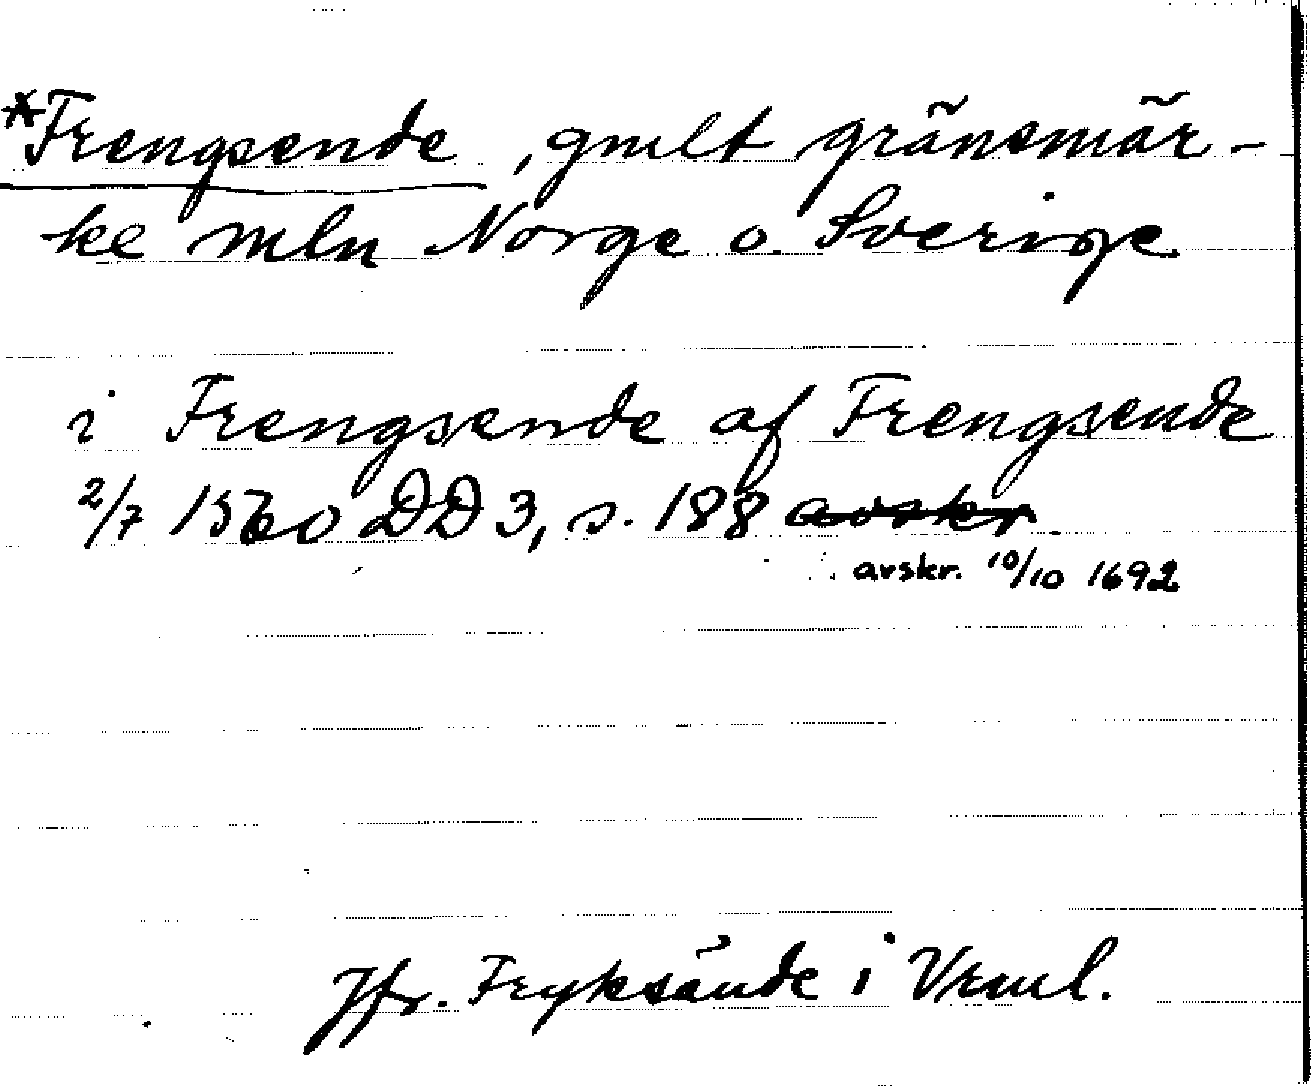 *Frengsende, gmlt gränsmär-
ke mln Norge o. Sverige
i Frengsende af Frengsende
2/7 1560 DD 3, s. 188 avskr
avskr. 10/10 1692
Jfr. Fryksände i Vrml.